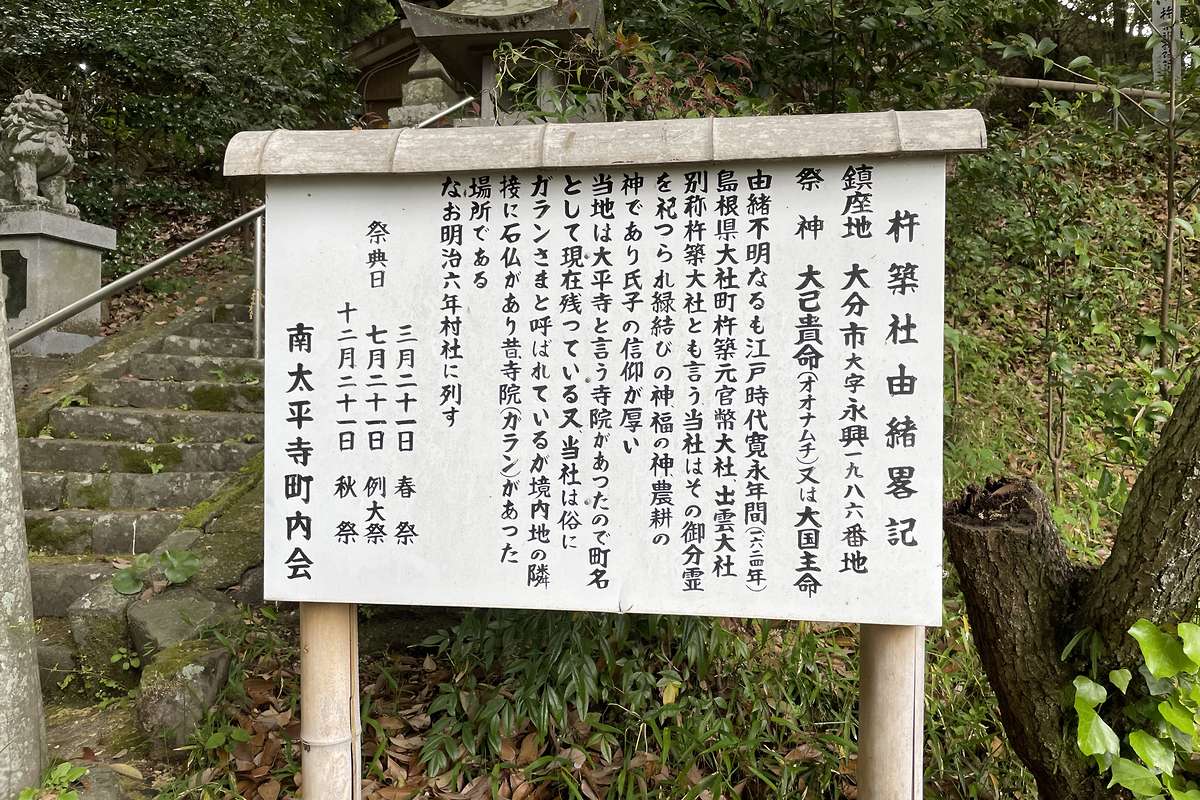 杵築社由緒畧記
鎮座地 大分市大字永興一九八六番地
祭神 大己貴命(オオナムチ)又は大国主命
由緒不明なるも江戸時代寛永年間(一六二四年)
島根県大社町杵築元官幣大社出雲大社
別称杵築大社とも言う当社はその御分霊
を祀つられ緑結びの神福の神農耕の
神であり氏子の信仰が厚い
当地は大平寺と言う寺院があつたので町名
として現在残つている又当社は俗に
ガランさまと呼ばれているが境内地の隣
接に石仏があり昔寺院(ガラン)があった
場所である
なお明治六年村社に列す
祭典日
三月二十一日 春祭
七月二十一日 例大祭
十二月二十一日 秋祭
南太平寺町内会